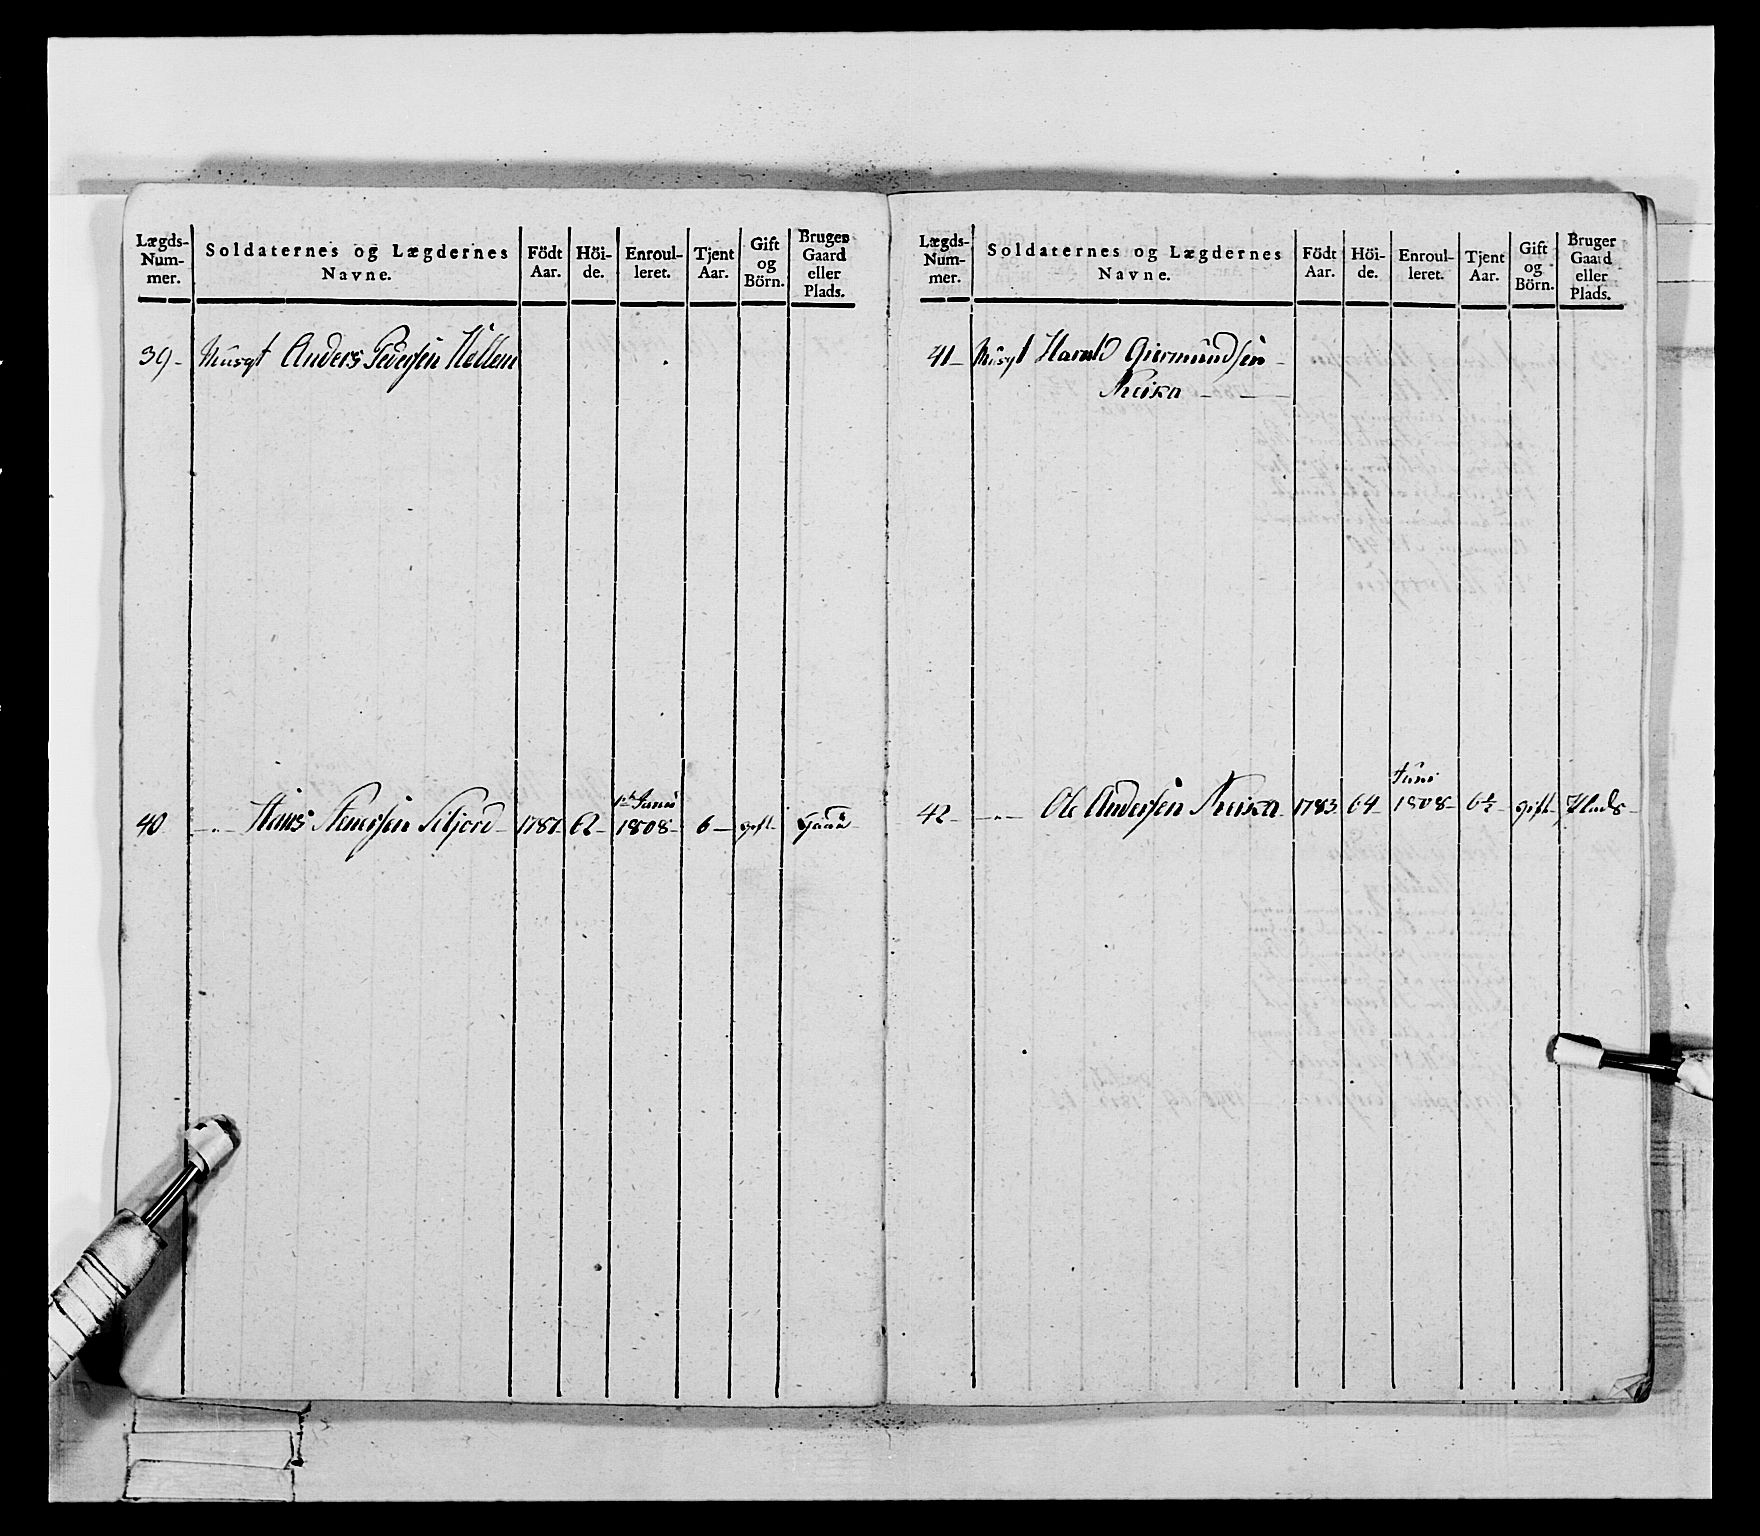 Lægds-Num-mer. Soldaternes og Lægdernes Navne. Födt Aar. Höi-de. Enroul-leret. Tjent Aar. Gift og Börn. Bruger Gaard eller Plads.
39 - Musqt Anders Pedersen Hellem
1ste Junii
40 - „ - Hans Stenersen 1781 62 - 1808 - 6 - gift - Gaard
Lægds-Num-mer. Soldaternes og Lægdernes Navne. Födt Aar. Höi-de. Enroul-leret. Tjent Aar. Gift og Börn. Bruger Gaard eller Plads.
41 - Musqt Harald Giermundsen -
Juni
42 - - „ - Ole Andersen 1783 64 - 1808 - 6½ - gift - Plads -